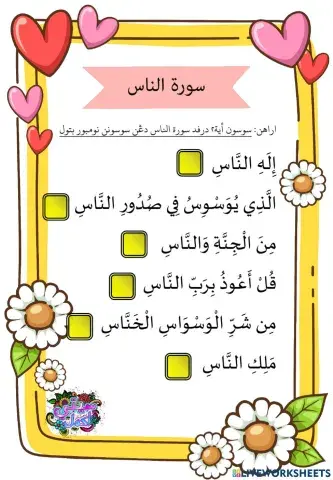 سورة الناس
اراهن: سوسون أية٢ درفد سورة الناس دڠن سوسونن نومبور بتول
إِلَهِ النَّاسِ
الَّذِي يُوَسْوِسُ فِي صُدُورِ النَّاسِ
مِنَ الْجِنَّةِ وَالنَّاسِ
قُلْ أَعُوذُ بِرَبِّ النَّاسِ
مِن شَرِّ الْوَسْوَاسِ الْخَنَّاسِ
مَلِكِ النَّاسِ
LIVEWORKSHEETS